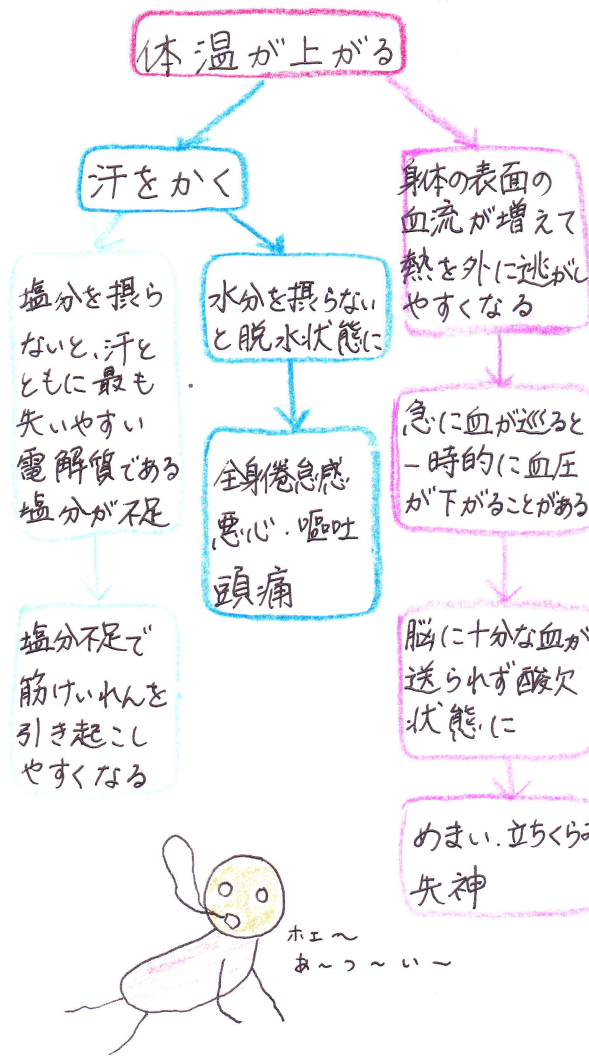 体温が上がる
汗をかく
塩分を摂ら
ないと、汗と
ともに最も
失いやすい
電解質である
塩分が不足
塩分不足で
筋けいれんを
引き起こし
やすくなる
水分を摂らない
と脱水状態に
全身倦怠感
悪心・嘔吐
頭痛
身体の表面の
血流が増えて
熱を外に逃がし
やすくなる
急に血が巡ると
一時的に血圧
が下がることがある
脳に十分な血が
送られず酸欠
状態に
めまい.立ちくらみ
失神
ホェ〜
あ〜つ〜い〜